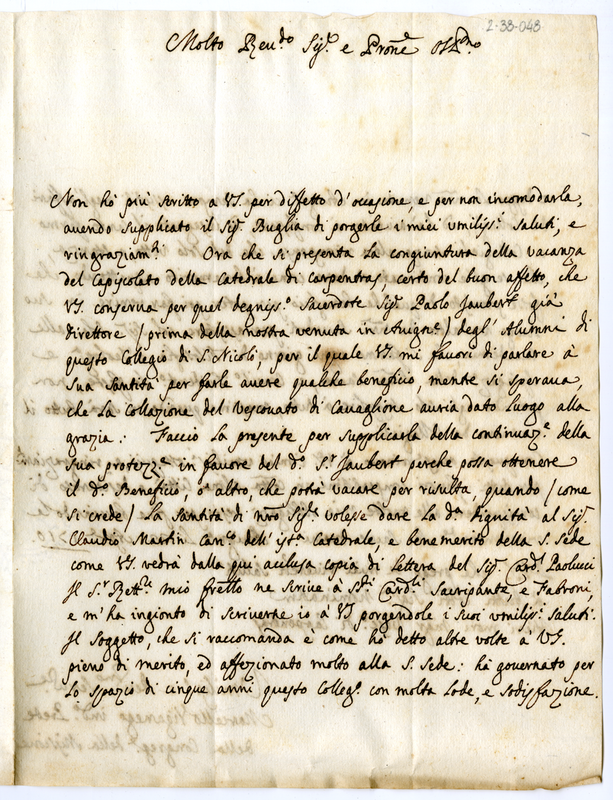 2-33-048
Molto Reu.do Sig.re e Prone
Non hò più scritto a VS. per diffetto d'occasione, e per non incomodarla,
auendo supplicato il Sig. Buglia di porgerle i miei vmiliss.i saluti, e
ringraziam.ti Ora che si presenta la congiuntura della vacanza
del Capiscolato della Catedrale di Carpentras, certo del buon affetto, che
VS. conserua per quel degniss.o Sacerdote Sig. Paolo Jaubert già
direttore / prima della nostra venuta in Auign.e / degl' Alumni di
questo Collegio di S. Nicolò, per il quale VS. mi favorì di parlare à
sua Santità per farle auere qualche beneficio, mentre si speraua,
che la Collazione del Vescouato di Cauaglione auria dato luogo alla
grazia: Faccio la presente per supplicarla della continuaz.e della
sua protezz.e in fauore del d.o S.r Jaubert perche possa ottenere
il d.o Beneficio, ò altro, che potrà vacare per risulta, quando / come
si crede / la Santità di nro Sig.re volesse dare la d.a dignità al Sig.
Claudio Martin Can.co dell' ista Catedrale, e benemerito della S. Sede
come VS. vedrà dalla qui acclusa copia di lettera del Sig. Card. Paolucci
Il S.r Rett.re mio frello ne scriue à SS.ri Card.li Sacripante, e Fabroni,
e m'ha ingionto di scriuerne io à VS porgendole i suoi vmiliss.i saluti.
Il soggetto, che si raccomanda è come hò detto altre volte à VS.
pieno di merito, ed affezionato molto alla S. Sede: hà gouernato per
lo spazio di cinque anni questo Colleg.o con molta lode, e sodisfazione.